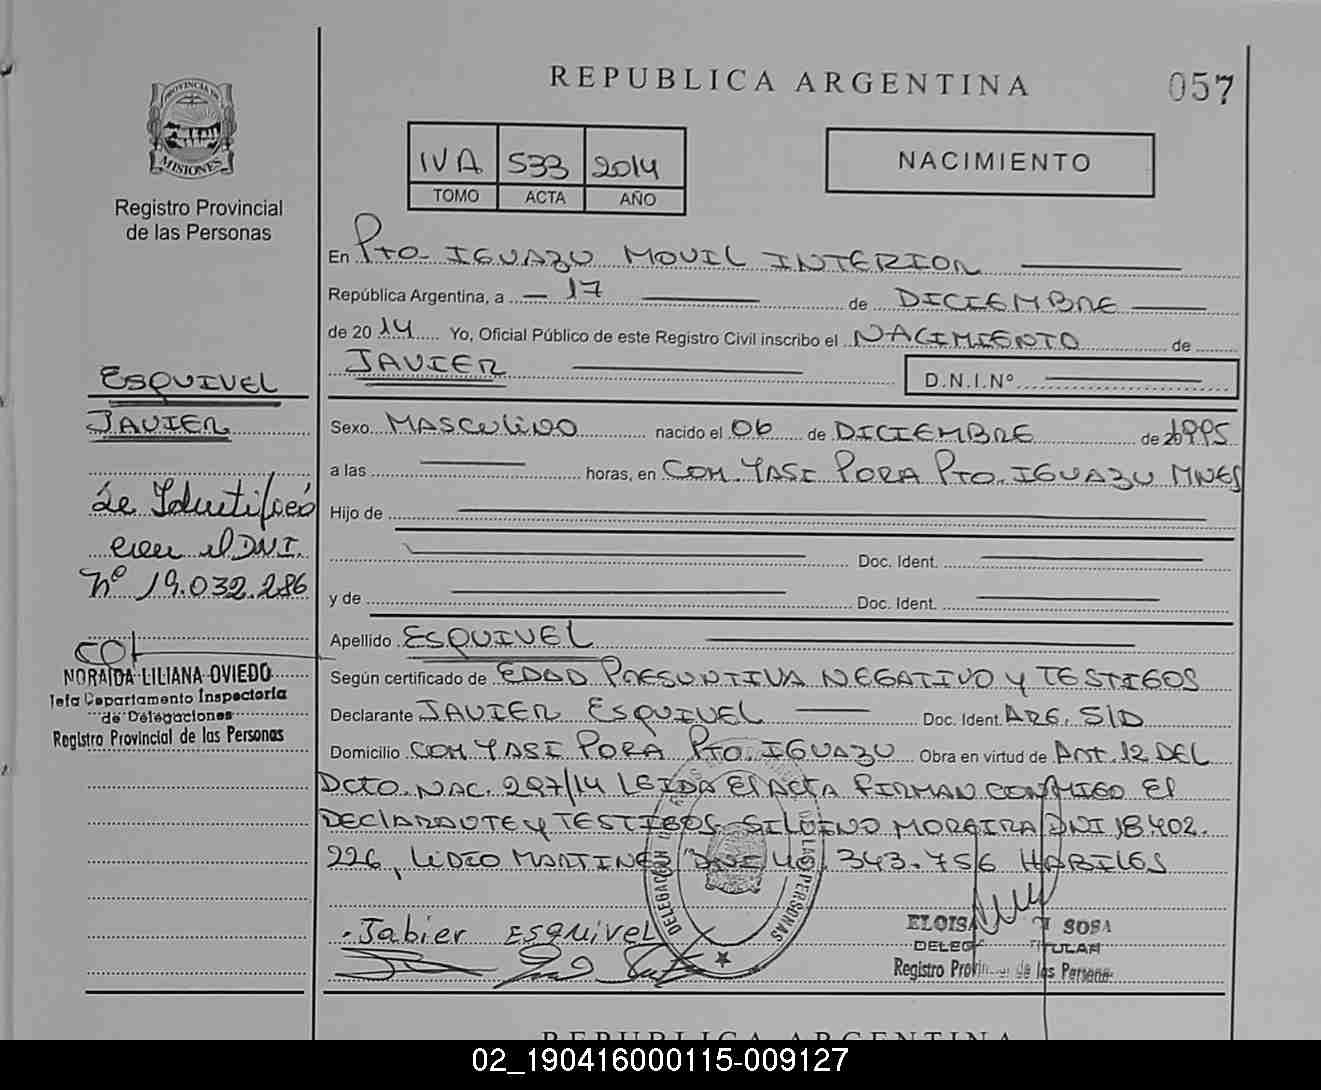 REPUBLICA ARGENTINA
057
PROVINCIA DE
MISIONES
Registro Provincial
de las Personas
IVA 533 2014
TOMO ACTA AÑO
NACIMIENTO
En Pto. IGUAZU MOVIL INTERIOR
República Argentina, a 17 de DICIEMBRE
de 2014 Yo, Oficial Público de este Registro Civil inscribo el NACIMIENTO de
JAVIER
D.N.I.Nº
ESQUIVEL
JAVIER
Se Identificó
con el DNI.
Nº 19.032.286
NORAIDA LILIANA OVIEDO
Jefa Departamento Inspectoria
de Delegaciones
Registro Provincial de las Personas
Sexo MASCULINO nacido el 06 de DICIEMBRE de 1995
a las horas, en COM. YASI PORA Pto. IGUAZU MNES
Hijo de
Doc. Ident.
y de Doc. Ident.
Apellido ESQUIVEL
Según certificado de EDAD PRESUNTIVA NEGATIVO y TESTIGOS
Declarante JAVIER ESQUIVEL Doc. Ident. ARG. S/D
Domicilio COM YASI PORA Pto. IGUAZU Obra en virtud de Art. 12 DEL
Dcto. NAC. 297/14 LEIDA El ACTA FIRMAN CONMIGO El
DEClARANTE y TESTIGOS SILVINO MOREIRA DNI 18.402.
226, LIDIO MARTINES DNI 40.343.756 HABILES
DELEGACION
LAS PERSONAS
Jabier ESquiveL
ELOISA SOSA
DELEG TITULAR
Registro Provincial de las Persona
REPUBLICA ARGENTINA
02_190416000115-009127